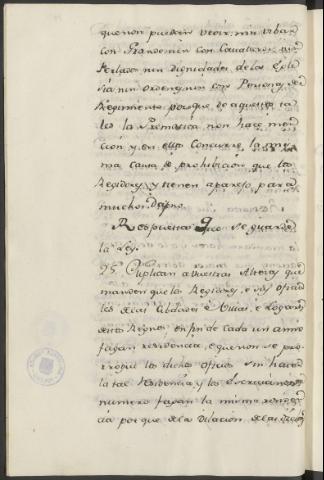 que non puedan vevir, nin vibar
con Grandes nin con Cavalleros, nin
Perlados nin dignidades de las Igle
sia nin ordenes nin con Persona del
Regimiento porque de aquestos ta
les la Prematica non hace men
ción y en ellos Concurre la mis
ma causa de prohibición que los
Regidores, y tienen aparejo para
mucho daño.
Respuesta Que se guarde
la Ley.
25. Suplican a vuestras Altezas que
manden que los Regidores, e los oficia
les de las Cibdades e Villas, e Logares
destos Reynos en fin de cada un anno
fagan residencia, e que non se pro
rrogue los dichos oficios sin hacer
la tal Residencia, y los Escrivanos
numero fagan la misma residen
cia porque de la dilacion de las